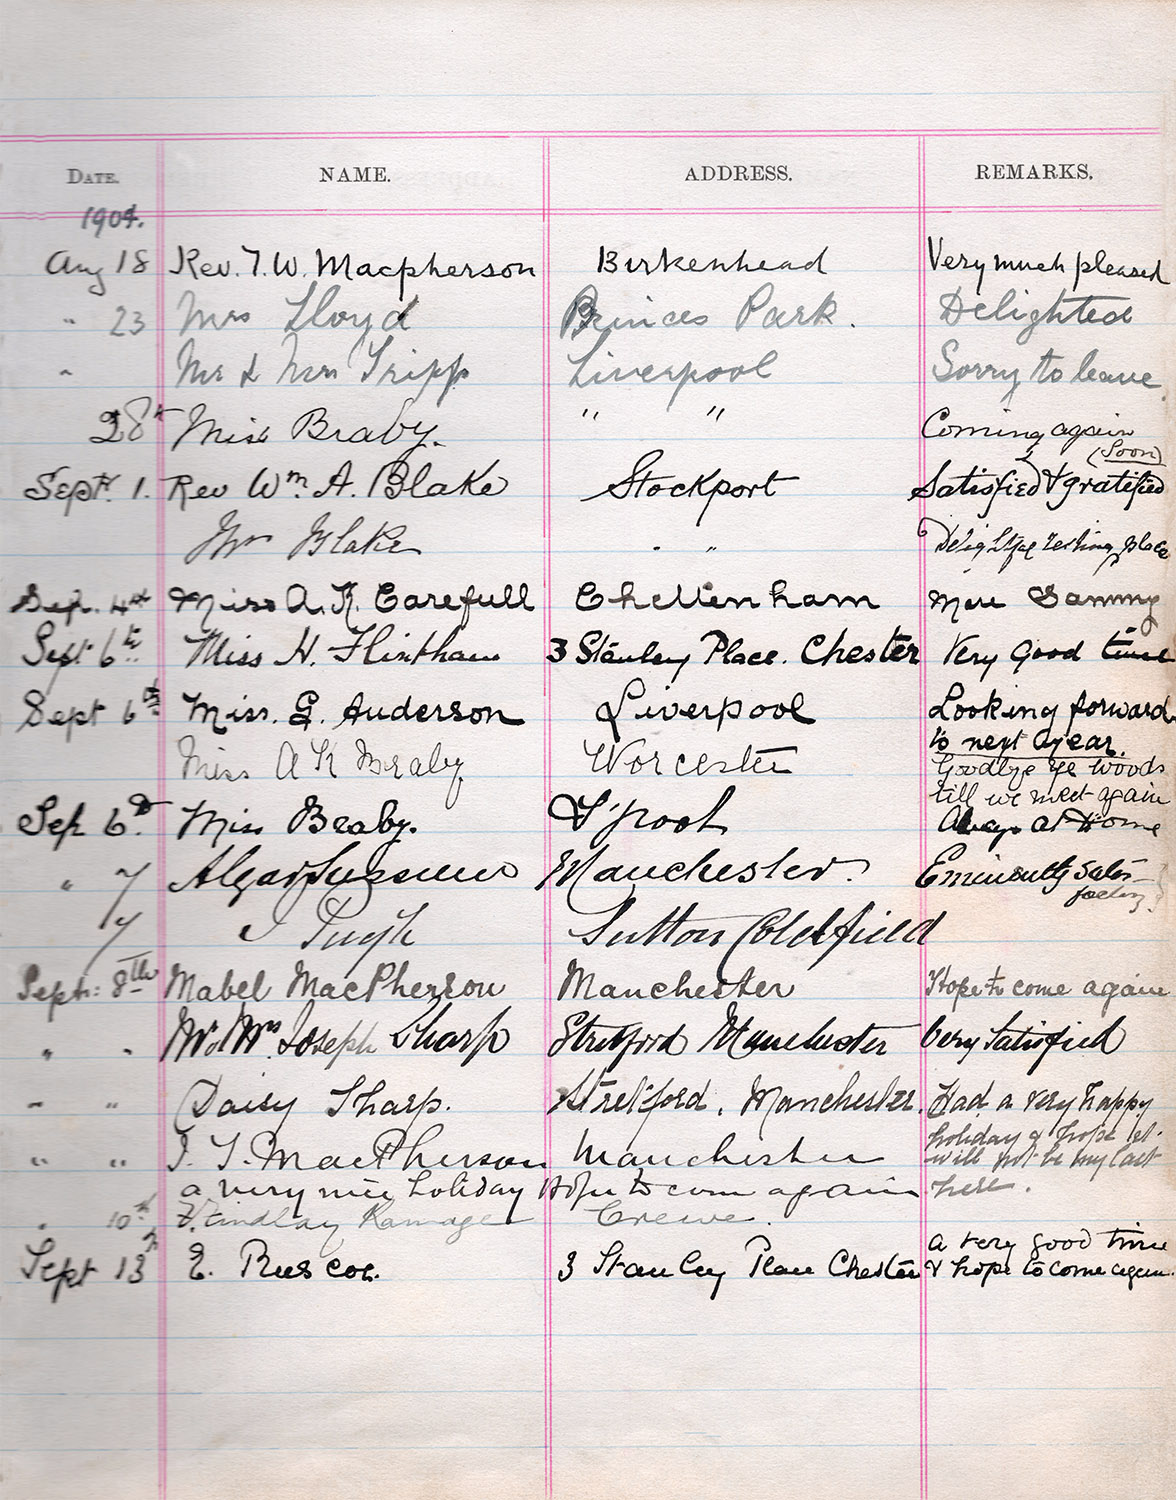 DATE. NAME. ADDRESS. REMARKS.
1904.
Aug 18 Rev. T. W. Macpherson Birkenhead Very much pleased
" 23 Mrs Lloyd Princes Park. Delighted
" Mr & Mrs Tripp Liverpool Sorry to leave
28th Miss Braby. " " Coming again
(Soon)
Sept. 1. Rev Wm. A. Blake Stockport Satisfied & gratified
Mrs Blake " " Delightful resting place
Sep. 4th Miss A. K. Carefull Cheltenham Mere
Sept 6th Miss H. Flintham 3 Stanley Place. Chester Very Good time
Sept 6th Miss. G. Anderson Liverpool Looking forward
to next year.
Miss A K Braby Worcester Goodbye ye woods
till we meet again
Sep 6th. Miss Braby. L'pool Always at Home
" 7 Manchester. Eminently satis-
factory.
" 7 Pugh Sutton Coldfield
Sept: 8th Mabel MacPherson Manchester Hope to come again
" " Mr & Mrs. Joseph Sharp Stretford Manchester Very Satisfied
" " Daisy Sharp. Stretford, Manchester. Had a very happy
holiday & hope it
will not be my last
here.
" " J. T. MacPherson Manchester
a very nice holiday Hope to come again
" 10th Findlay Ramage Crewe.
Sept 13th E. Ruscoe. 3 Stanley Place Chester a very good time
& hope to come again.